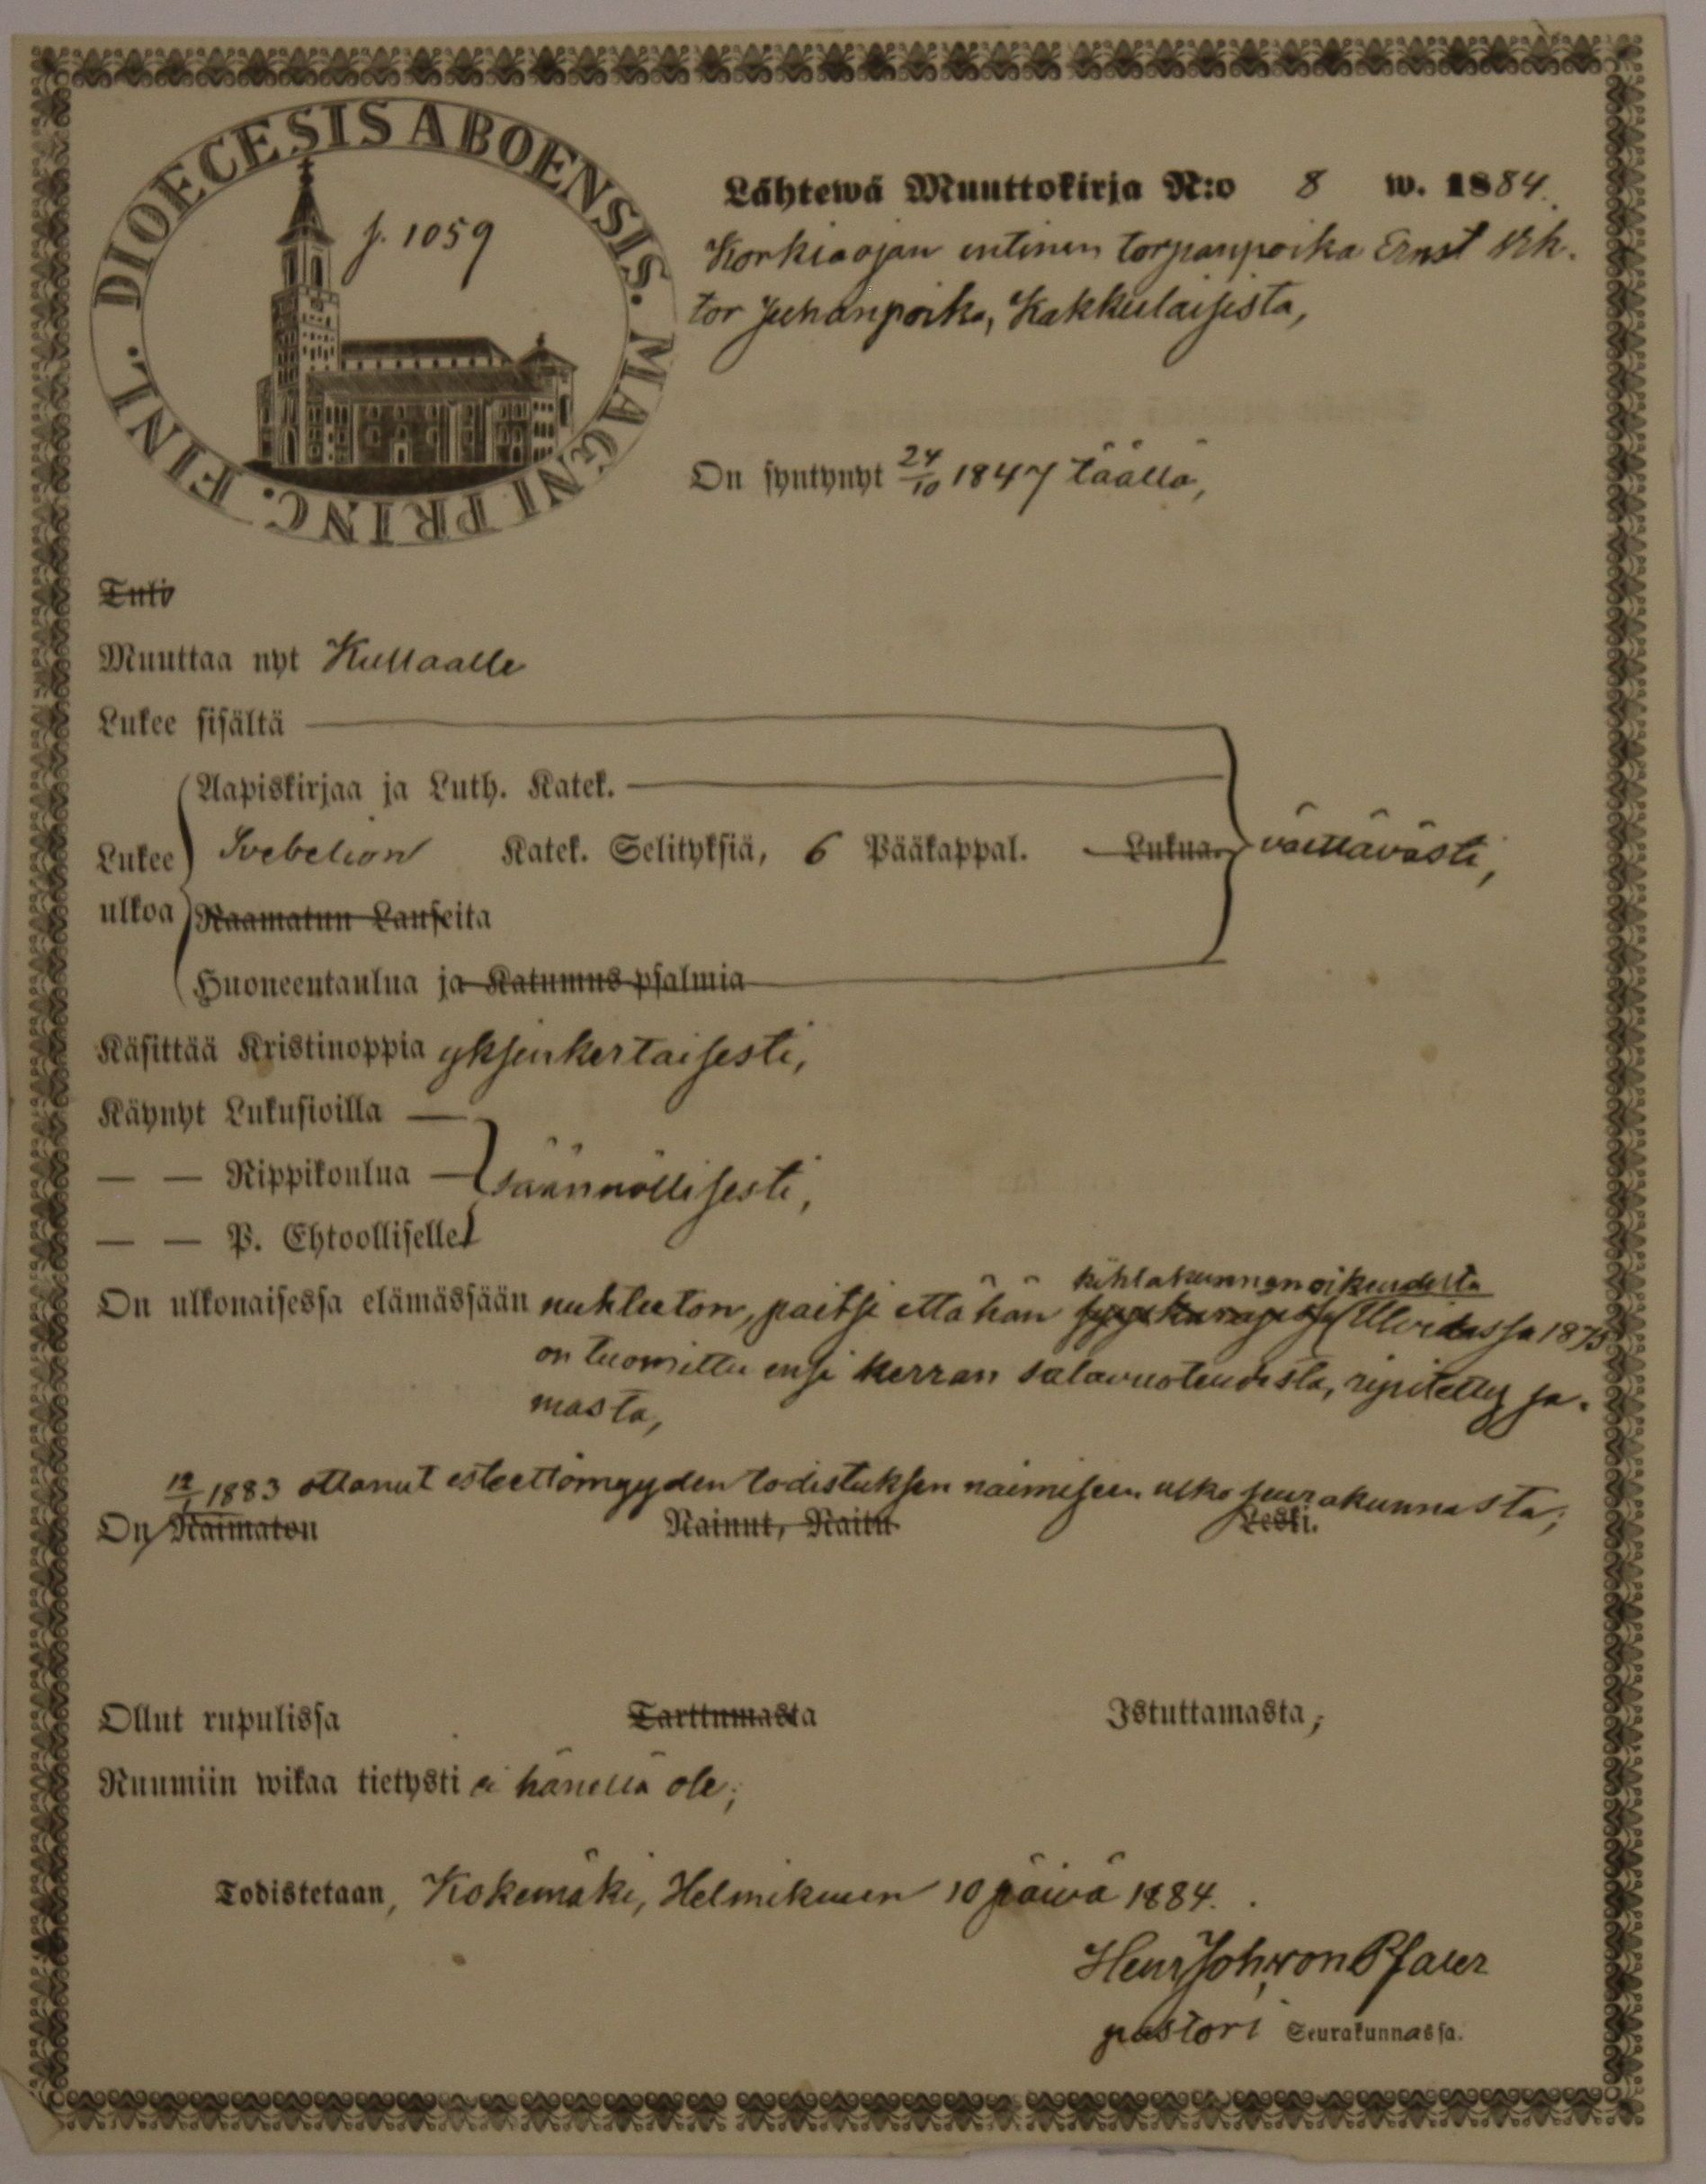 DIOECESIS ABOENSIS. MAGNI PRINC. FINL.
f. 1059
Lähtewä Muuttokirja N:o 8 w. 1884.
Korkiaojan entinen torpanpoika Ernst Vik-
tor Juhanpoika, Kakkulaisista,
On syntynyt 24/10 1847 täällä,
Tuli
Muuttaa nyt Kullaalle
Lukee sisältä
Aapiskirjaa ja Luth. Katek.
Lukee ulkoa
Svebelion Katek. Selityksiä, 6 Pääkappal. Lukua. välttävästi,
Raamatun Lauseita
Huoneentaulua ja Katumus psalmia
Käsittää Kristinoppia yksinkertaisesti,
Käynyt Lukusioilla
— — Rippikoulua säännöllisesti,
— — P. Ehtoolliselle
kihlakunnanoikeudesta
On ulkonaisessa elämässään nuhteeton, paitsi että hän Ulvilassa 1875
on tuomittu ensi kerran salavuoteudesta, ripitetty sa-
masta,
12/1 1883 ottanut esteettömyyden todistuksen naimiseen ulko seurakunnasta;
On Naimaton Nainut, Naitu Leski.
Ollut rupulissa Tarttumasta Istuttamasta,
Ruumiin wikaa tietysti ei hänellä ole;
Todistetaan, Kokemäki, Helmikuun 10 päivä 1884.
Henr Joh von Pfaler
pastori Seurakunnassa.